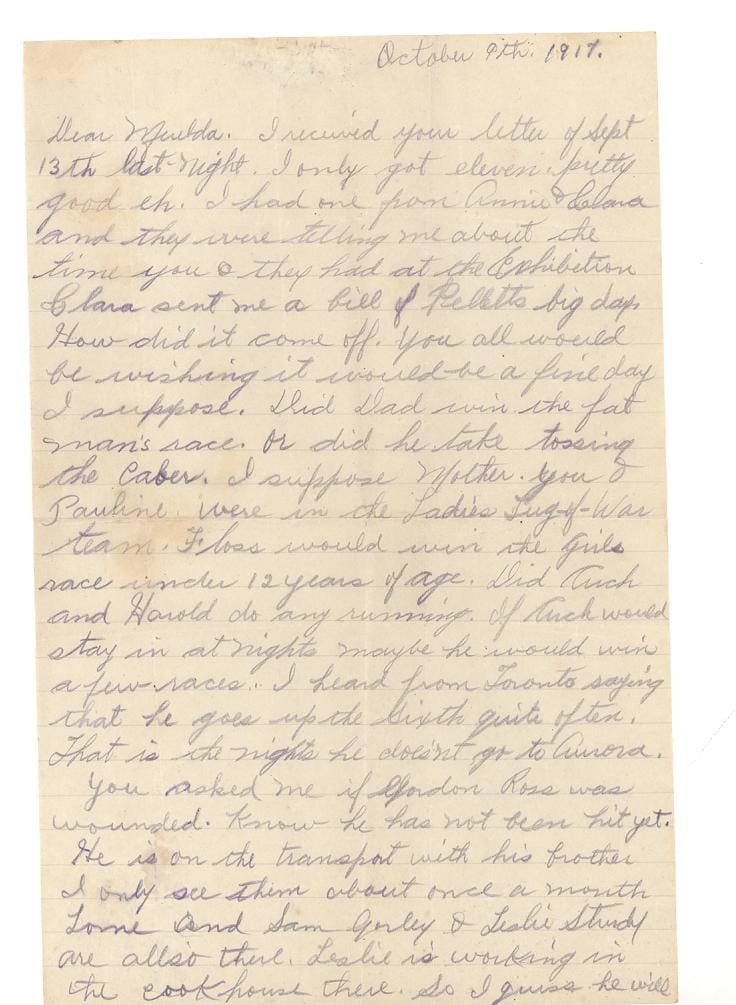 October 9th. 1917.
Dear Merlda. I received your letter of Sept
13th last-night. I only got eleven. pretty
good eh. I had one from Annie & Clara
and they were telling me about the
time you & they had at the Exhibition
Clara sent me a bill of Pelletts big day
How did it come off. You all would
be wishing it would-be a fine day
I suppose. Did Dad win the fat
man's race. Or did he take tossing
the Caber. I suppose Mother. you &
Pauline. were in the Ladies Tug-of-War
team. Floss would win the girls
race under 12 years of age. Did
and Harold do any running. If would
stay in at nights maybe he would win
a few races. I heard from Toronto saying
that he goes up the Sixth quite often.
That is the nights he does'nt go to Aurora.
You asked me if Gordon Ross was
wounded. Know he has not been hit yet.
He is on the transport with his brother
I only see them about once a month
Lorne and Sam Gorley & Leslie Sturdy
are allso there. Leslie is working in
the cook house there. So I guess he will